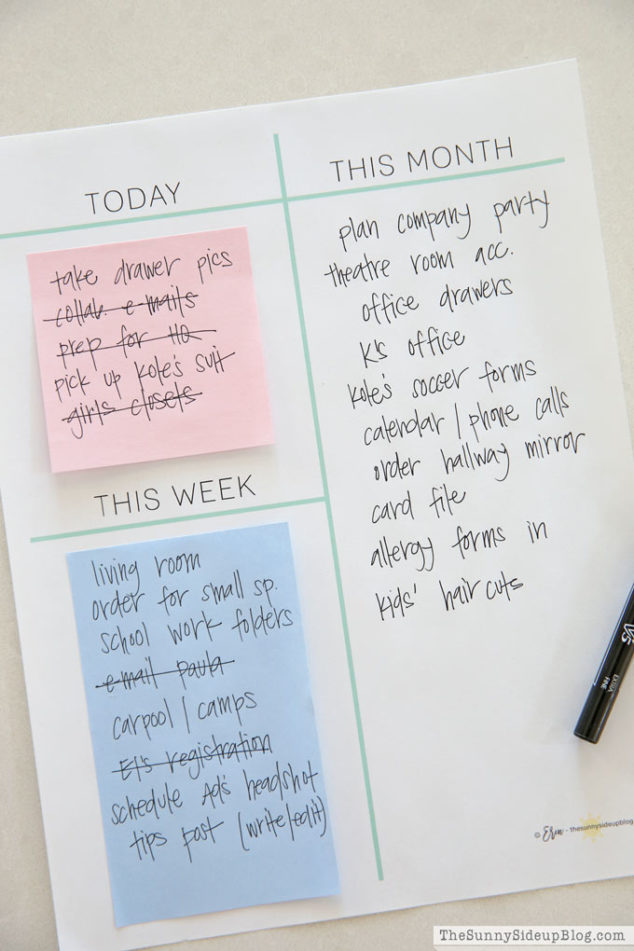 TODAY
take drawer pics
collab. e-mails
prep for HQ
pick up Kole's suit
girls closets
THIS WEEK
living room
order for small sp.
school work folders
e-mail paula
carpool / camps
El's registration
schedule Ad's headshot
tips post (write/edit)
THIS MONTH
plan company party
theatre room acc.
office drawers
K's office
Kole's soccer forms
calendar / phone calls
order hallway mirror
card file
allergy forms in
kids' haircuts
V5
EXTRA
FINE
© Erin - thesunnysideupblog
TheSunnySideupBlog.com